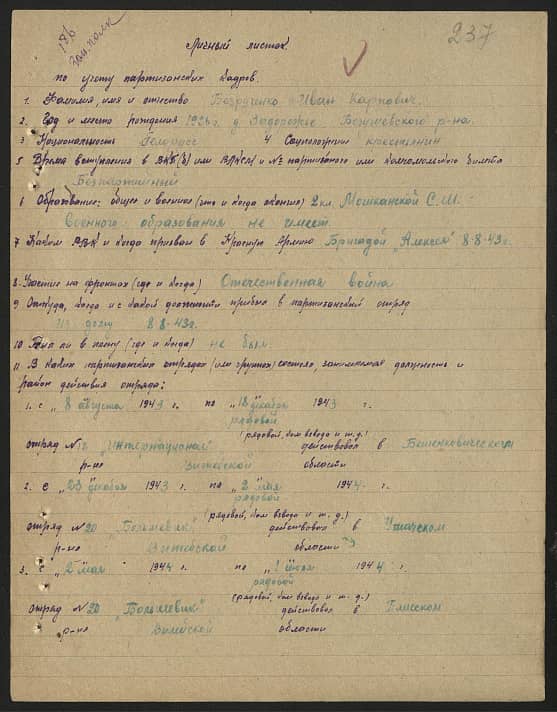 186
Зап. полк
237
Личный листок
по учету партизанских кадров.
1. Фамилия, имя и отчество Бозрученко Иван Карпович.
2. Год и место рождения 1926 г. д. Задорожье Бешенковского р-на.
3 Национальность белорус 4 Соцположение крестьянин
5 Время вступления в ВКП(б) или ВЛКСМ и № партийного или комсомольского билета
Безпартийный
6 Образование: общее и военное (что и когда окончил) 2 кл. Мошканской С.Ш.
Военного образования не имеет.
7 Каким РВК и когда призван в Красную Армию Бригадой "Алексея" 8-8-43г.
8. Участие на фронтах (где и когда) Отечественная война
9 Откуда, когда и с какой должности прибыл в партизанский отряд
из дому 8-8-43г.
10 Был ли в плену (где и когда) не был.
11 В каких партизанских отрядах (или группах) состоял, занимаемая должность и
район действия отряда:
1. с "8 августа 1943 г. по "18 декабря 1943 г.
рядовой
(рядовой, ком. взвода и т.д.)
отряд № 12 "Интернационал" действовал в Бешенковическом
р-не Витебской области
2. с "23 декабря 1943 г. по "2 мая 1944 г.
рядовой
(рядовой, ком взвода и т.д.)
отряд № 20 "Большевик" действовал в Ушачском
р-не Витебской области
3. с "2 мая 1944 г. по "1 июля 1944 г.
рядовой
(рядовой, ком взвода и т.д.)
отряд № 20 "Большевик" действовал в Плисском
р-не Вилейской области